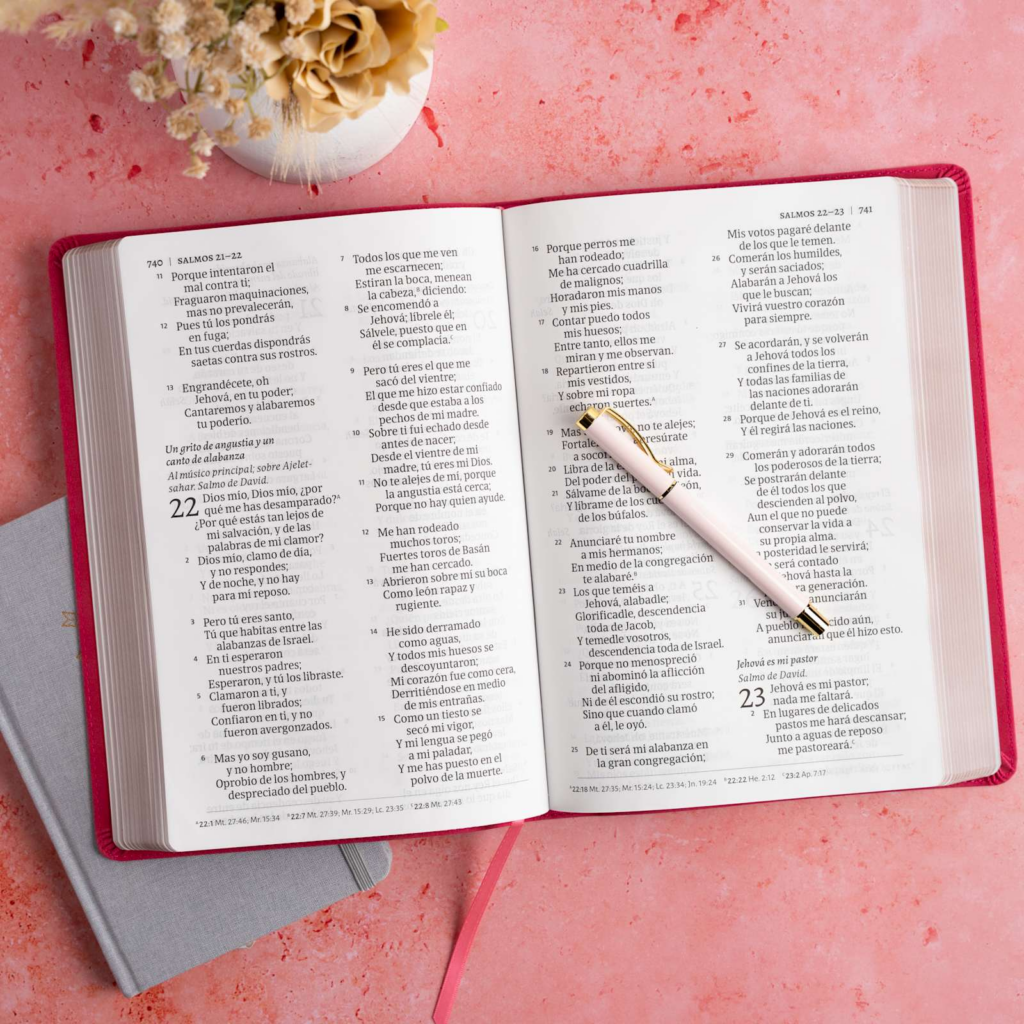 740 | SALMOS 21–22
11 Porque intentaron el
mal contra ti;
Fraguaron maquinaciones,
mas no prevalecerán,
12 Pues tú los pondrás
en fuga;
En tus cuerdas dispondrás
saetas contra sus rostros.
13 Engrandécete, oh
Jehová, en tu poder;
Cantaremos y alabaremos
tu poderio.
Un grito de angustia y un
canto de alabanza
Al músico principal; sobre Ajelet-
sahar. Salmo de David.
22 Dios mío, Dios mío, ¿por
qué me has desamparado?ᴬ
¿Por qué estás tan lejos de
mi salvación, y de las
palabras de mi clamor?
2 Dios mío, clamo de día,
y no respondes;
Y de noche, y no hay
para mí reposo.
3 Pero tú eres santo,
Tú que habitas entre las
alabanzas de Israel.
4 En ti esperaron
nuestros padres;
Esperaron, y tú los libraste.
5 Clamaron a ti, y
fueron librados;
Confiaron en ti, y no
fueron avergonzados.
6 Mas yo soy gusano,
y no hombre;
Oprobio de los hombres, y
despreciado del pueblo.
7 Todos los que me ven
me escarnecen;
Estiran la boca, menean
la cabeza,ᴮ diciendo:
8 Se encomendó a
Jehová; líbrele él;
Sálvele, puesto que en
él se complacía.ᶜ
9 Pero tú eres el que me
sacó del vientre;
El que me hizo estar confiado
desde que estaba a los
pechos de mi madre.
10 Sobre ti fui echado desde
antes de nacer;
Desde el vientre de mi
madre, tú eres mi Dios.
11 No te alejes de mí, porque
la angustia está cerca;
Porque no hay quien ayude.
12 Me han rodeado
muchos toros;
Fuertes toros de Basán
me han cercado.
13 Abrieron sobre mí su boca
Como león rapaz y
rugiente.
14 He sido derramado
como aguas,
Y todos mis huesos se
descoyuntaron;
Mi corazón fue como cera,
Derritiéndose en medio
de mis entrañas.
15 Como un tiesto se
secó mi vigor,
Y mi lengua se pegó
a mi paladar,
Y me has puesto en el
polvo de la muerte.
ᴬ22:1 Mt. 27:46; Mr. 15:34 ᴮ22:7 Mt. 27:39; Mr. 15:29; Lc. 23:35 ᶜ22:8 Mt. 27:43
SALMOS 22–23 | 741
16 Porque perros me
han rodeado;
Me ha cercado cuadrilla
de malignos;
Horadaron mis manos
y mis pies.
17 Contar puedo todos
mis huesos;
Entre tanto, ellos me
miran y me observan.
18 Repartieron entre sí
mis vestidos,
Y sobre mi ropa
echaron suertes.ᴬ
19 Mas no te alejes;
20 Libra de la mi alma,
Del poder del vida.
21 Sálvame de la
Y líbrame de los
de los búfalos.
22 Anunciaré tu nombre
a mis hermanos;
En medio de la congregación
te alabaré.ᴮ
23 Los que teméis a
Jehová, alabadle;
Glorificadle, descendencia
toda de Jacob,
Y temedle vosotros,
descendencia toda de Israel.
24 Porque no menospreció
ni abominó la aflicción
del afligido,
Ni de él escondió su rostro;
Sino que cuando clamó
a él, le oyó.
25 De ti será mi alabanza en
la gran congregación;
Mis votos pagaré delante
de los que le temen.
26 Comerán los humildes,
y serán saciados;
Alabarán a Jehová los
que le buscan;
Vivirá vuestro corazón
para siempre.
27 Se acordarán, y se volverán
a Jehová todos los
confines de la tierra,
Y todas las familias de
las naciones adorarán
delante de ti.
28 Porque de Jehová es el reino,
Y él regirá las naciones.
29 Comerán y adorarán todos
los poderosos de la tierra;
Se postrarán delante
de él todos los que
descienden al polvo,
Aun el que no puede
conservar la vida a
su propia alma.
posteridad le servirá;
será contado
hasta la
generación.
31 anunciarán
su
A pueblo aún,
anunciarán que él hizo esto.
Jehová es mi pastor
Salmo de David.
23 Jehová es mi pastor;
nada me faltará.
2 En lugares de delicados
pastos me hará descansar;
Junto a aguas de reposo
me pastoreará.ᶜ
ᴬ22:18 Mt. 27:35; Mr. 15:24; Lc. 23:34; Jn. 19:24 ᴮ22:22 He. 2:12 ᶜ23:2 Ap. 7:17